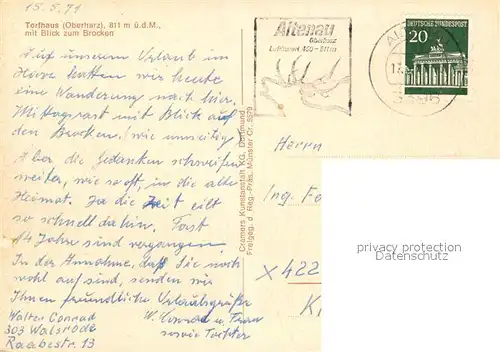 15.5.71
Torfhaus (Oberharz), 811 m ü.d.M.,
mit Blick zum Brocken
Auf unserem Urlaub im
Harz hatten wir heute
eine Wanderung nach hier.
Mittagsrast mit Blick auf
den Brocken. (wie umseitig)
Aber die Gedanken schweifen
weiter, wie so oft, in die alte
Heimat. Ja die Zeit eilt
so schnell dahin. Fast
14 Jahre sind vergangen
In der Annahme, daß Sie noch
wohl auf sind, senden wir
Ihnen freundliche Urlaubsgrüße
W. Conrad u. Frau
sowie Tochter
Walter Conrad
303 Walsrode
Raabestr. 13
Cramers Kunstanstalt KG, Dortmund
Freigeg. d. Reg.-Präs. Münster Cr. 5579
Altenau
Oberharz
Luftkurort 450-811m
DEUTSCHE BUNDESPOST
20
Herrn
Ing. Fe
x 422
K
privacy protection